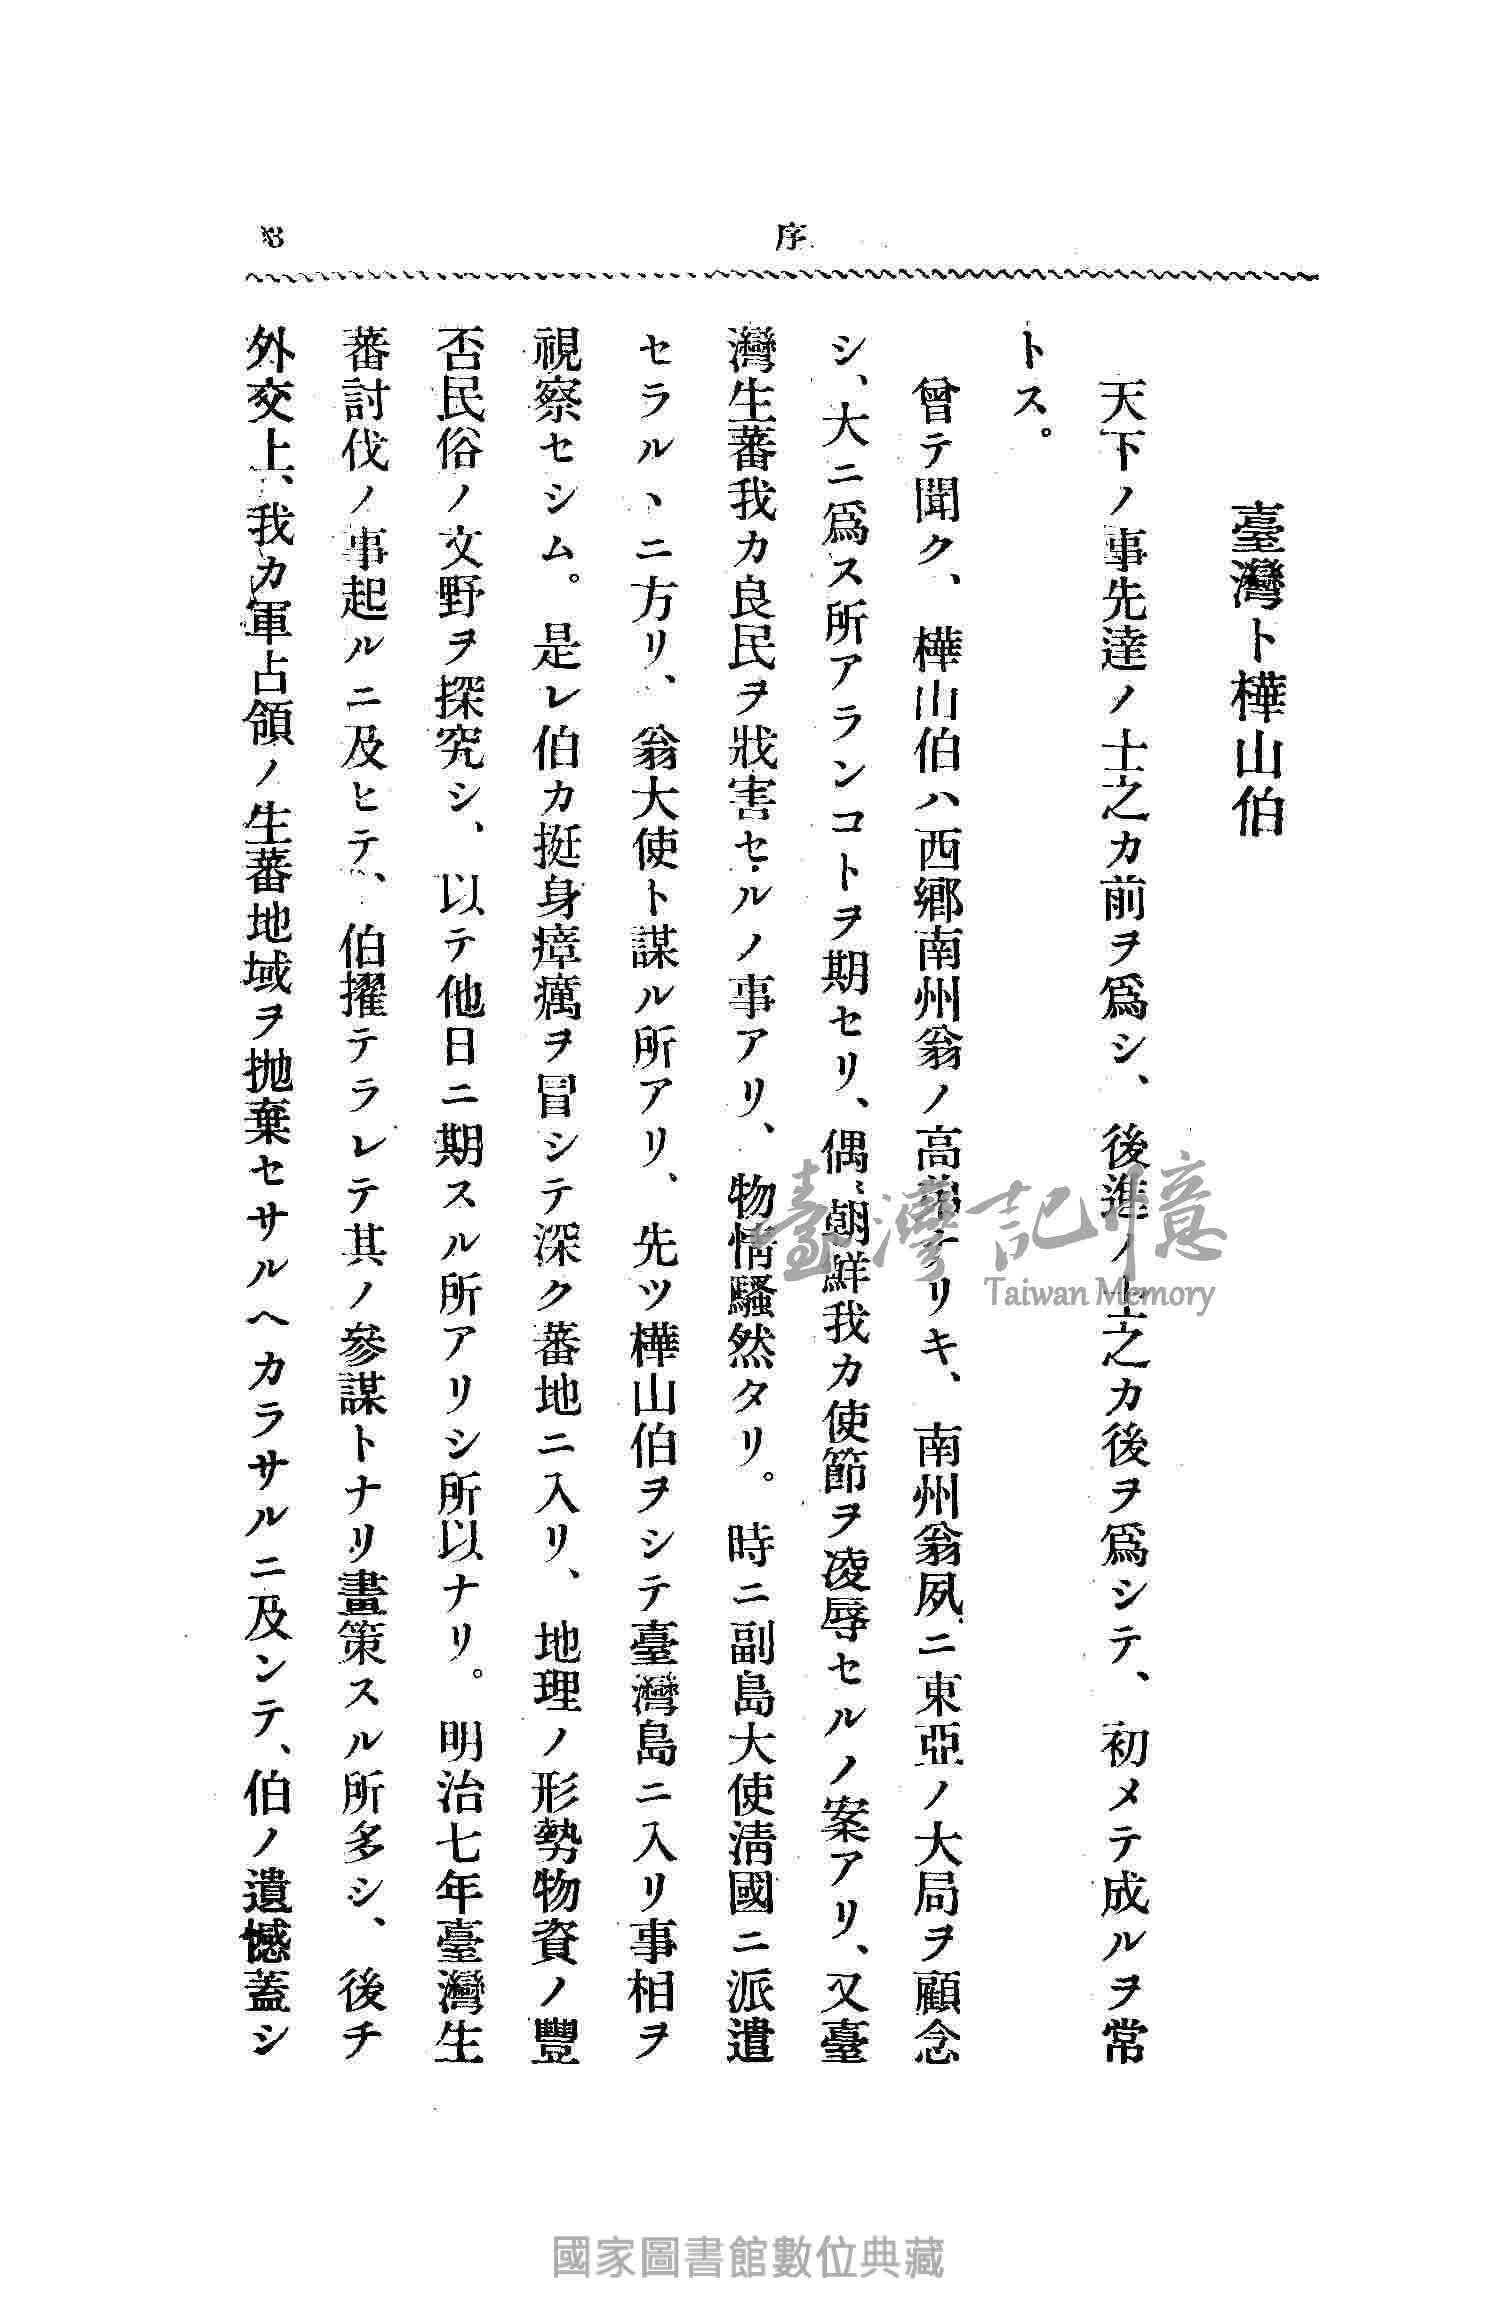 序
臺灣ト樺山伯
天下ノ事先達ノ士之カ前ヲ爲シ、後進ノ士之カ後ヲ爲シテ、初メテ成ルヲ常
トス。
曾テ聞ク、樺山伯ハ西鄕南州翁ノ高弟ナリキ、南州翁夙ニ東亞ノ大局ヲ顧念
シ、大ニ爲ス所アランコトヲ期セリ、偶〻朝鮮我カ使節ヲ凌辱セルノ案アリ、又臺
灣生蕃我カ良民ヲ戕害セルノ事アリ、物情騷然タリ。時ニ副島大使淸國ニ派遣
セラルヽニ方リ、翁大使ト謀ル所アリ、先ツ樺山伯ヲシテ臺灣島ニ入リ事相ヲ
視察セシム。是レ伯カ挺身瘴癘ヲ冒シテ深ク蕃地ニ入リ、地理ノ形勢物資ノ豐
否民俗ノ文野ヲ探究シ、以テ他日ニ期スル所アリシ所以ナリ。明治七年臺灣生
蕃討伐ノ事起ルニ及ヒテ、伯擢テラレテ其ノ參謀トナリ畫策スル所多シ、後チ
外交上、我カ軍占領ノ生蕃地域ヲ抛棄セサルヘカラサルニ及ンテ、伯ノ遺憾蓋シ
臺灣記憶
Taiwan Memory
國家圖書館數位典藏